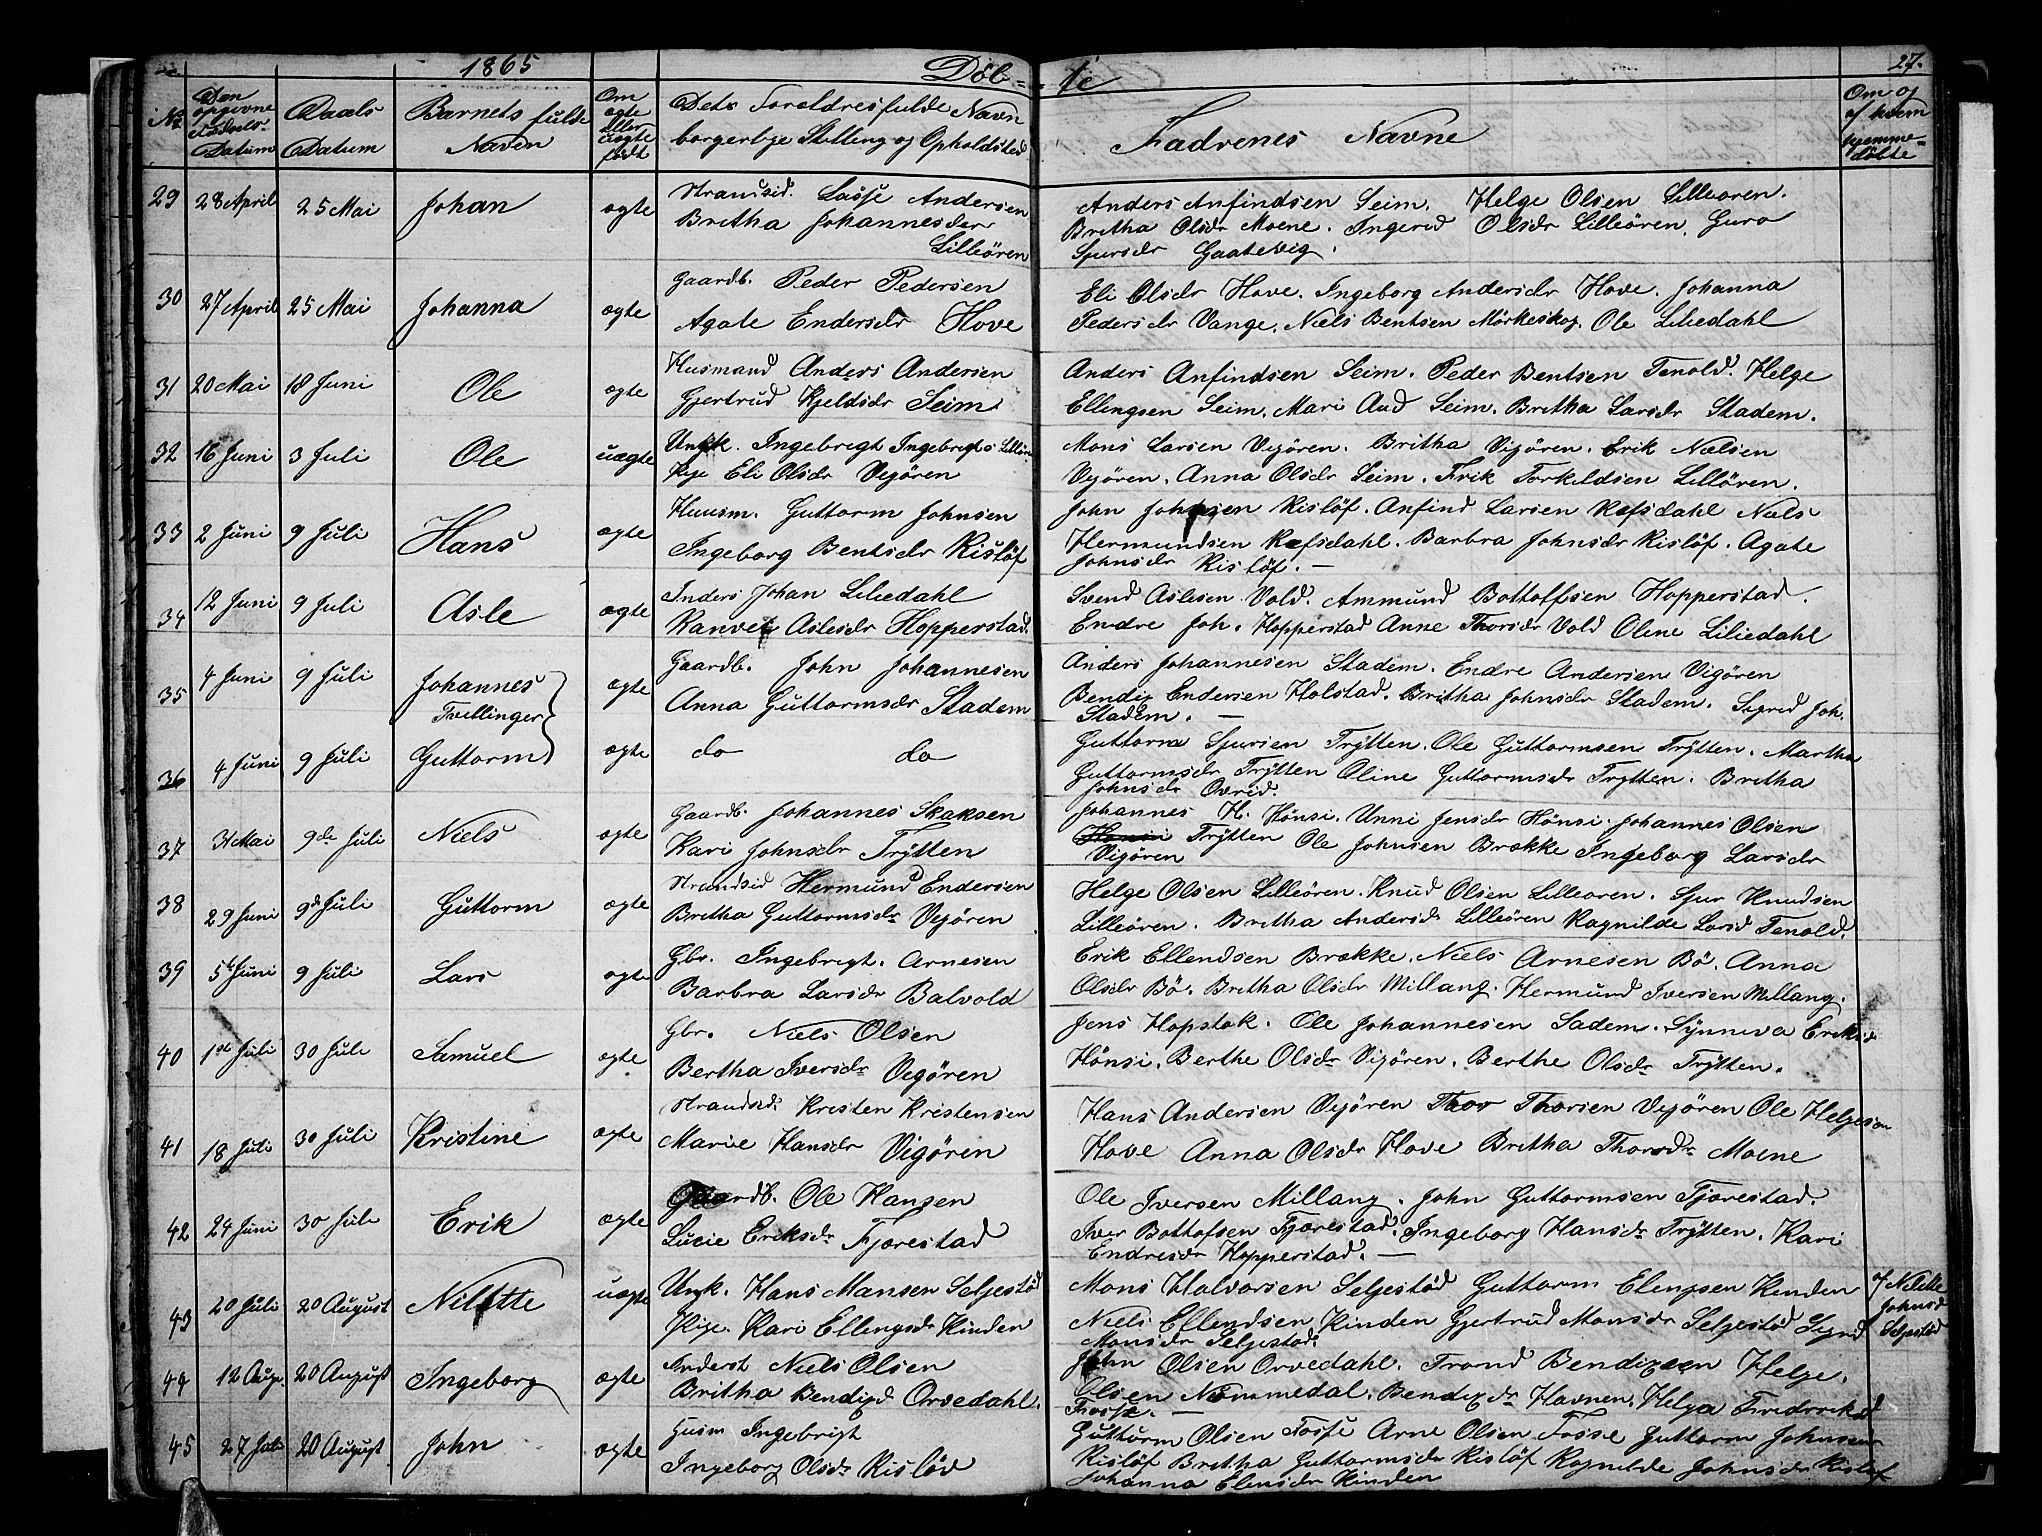 1865 Døb- te 27.
No Den opgivne Fødsels- Datum Daabs Datum Barnets fulde Navn Om ægte eller uægte født Dets Forældres fulde Navn borgerlige Stilling og Opholdsted Fadrenes Navne Om og af hvem hjemme- døbte
29 28 April 25 Mai Johan ægte Strandsid. Lasse Andersen
Britha Johannesdr
Lilleören
Anders Anfindsen Seim. Helge Olsen Lilleören.
Britha Olsdr Moene. Ingerid Olsdr Lilleören, Guro
Sjursdr Gaatevig.
30 27 April 25 Mai Johanna ægte Gaardb. Peder Pedersen
Agate Endersdr Hove
Eli Olsdr Hove. Ingeborg Andersdr Hove. Johanna
Pedersdr Vange. Niels Bentsen Mörkeskog. Ole Liliedahl
31 20 Mai 18 Juni Ole ægte Husmand Anders Andersen
Gjertrud Kjeldsdr Seim
Anders Anfindsen Seim. Peder Bentsen Tenold. Helge
Ellingsen Seim. Mari Aud Seim. Britha Larsdr Stadem.
32 16 Juni 3 Juli Ole uægte Ungk. Ingebrigt Ingebrigts Lilleören
Pige Eli Olsdr Vigören
Mons Larsen Vigören. Britha Vigören. Erik Nielsen
Vigören. Anna Olsdr Seim. Erik Torkildsen Lilleören.
33 2 Juni 9 Juli Hans ægte Huusm. Guttorm Johnsen
Ingeborg Bentsdr Rislöf
John Johnsen Rislöf. Anfind Larsen Refsdahl Niels
Hermundsen Refsdahl. Barbra Johnsdr Rislöf. Agate
Johnsdr Rislöf. —
34 12 Juni 9 Juli Asle ægte Inders Johan Liliedahl
Ranvei Aslesdr Hopperstad.
Svend Aslesen Vold. Ammund Bottolfsen Hopperstad.
Endre Joh. Hopperstad Anne Thorsdr Vold Oline Liliedahl
35 4 Juni 9 Juli Johannes
Tvillinger
ægte Gaardb. John Johannesen
Anna Guttormsdr Stadem
Anders Johannesen Stadem. Endre Andersen Vigören
Bendix Endersen Holstad. Britha Johnsdr Stadem. Sigrid Joh.
Stadem. —
36 4 Juni 9 Juli Guttorm ægte do do
Guttorm Sjursen Trÿtten. Ole Guttormsen Trÿtten. Martha
Guttormsdr Trÿtten Oline Guttormsdr Trÿtten. Britha
Johnsdr Ovrid.
37 31 Mai 9de Juli Niels ægte Gaardb. Johannes Skaksen
Kari Johnsdr Trÿtten
Johannes H. Hönsi. Unni Jensdr Hönsi. Johannes Olsen
Hönsi Trÿtten Ole Johnsen Brække Ingeborg Larsdr
Vigören
38 29 Juni 9d Juli Guttorm ægte Strandsid Hermund Endersen
Britha Guttormsdr Vigören
Helge Olsen Lilleören. Knud Olsen Lilleören. Sjur Knudsen
Lilleören. Britha Andersdr Lilleören Ragnilde Larsd Tenold.
39 5te Juni 9 Juli Lars ægte Gbr. Ingebrigt. Arnesen
Barbra Larsdr Balvold
Erik Ellendsen Brække. Niels Arnesen Bö. Anna
Olsdr Bö. Britha Olsdr Millang. Hermund Iversen Millang.
40 1st Juli 30 Juli Samuel ægte Gbr. Niels Olsen
Bertha Iversdr Vigören
Jens Hopstok. Ole Johannesen Sadem. Sÿnneva Eriksd
Hönsi. Berthe Olsdr Vigören. Berthe Olsdr Trÿtten.
41 18 Juli 30 Juli Kristine ægte Strandsd. Kresten Kristensen
Marie Hansdr Vigören
Hans Andersen Vigören Thor Thorsen Vigören Ole Helgesen
Hove Anna Olsdr Hove Britha Thorsdr Moene
42 24 Juni 30 Juli Erik ægte Gaardb. Ole Hansen
Lucie Eriksdr Fjærestad
Ole Iversen Millang. John Guttormsen Fjærestad.
Iver Bottolfsen Fjærestad. Ingeborg Hansdr Trÿtten. Kari
Endresdr Hopperstad. —
43 20 Juli 20 August Nilotte uægte Ungk. Hans Mansen Seljestöd
Pige. Kari Ellingsdr Kinden
Mons Halvorsen Seljestöd Guttorm Elengsen Kinden
Niels Ellendsen Kinden Gjertrud Monsdr Seljestöd Sigrid
Monsdr Seljestöd.
af Nille
Johnsd
Seljestöd
44 12 Aug. 20 August Ingeborg ægte Inderst Niels Olsen
Britha Bendixd Orvedahl.
John Olsen Orvedahl. Trond Bendixsen Helge.
Olsen Nummedal. Bendixdr Havnen. Helga Fredriksd
Fosse. —
45 27 Juli 20 August John ægte Husm Ingebrigt
Ingeborg Olsdr Rislöv
Guttorm Olsen Fosse Arne Olsen Fosse Guttorm Johnsen
Rislöf Britha Guttormsdr Rislöf Ragnilde Johnsdr Rislöf
Johanna Elensdr Kinden